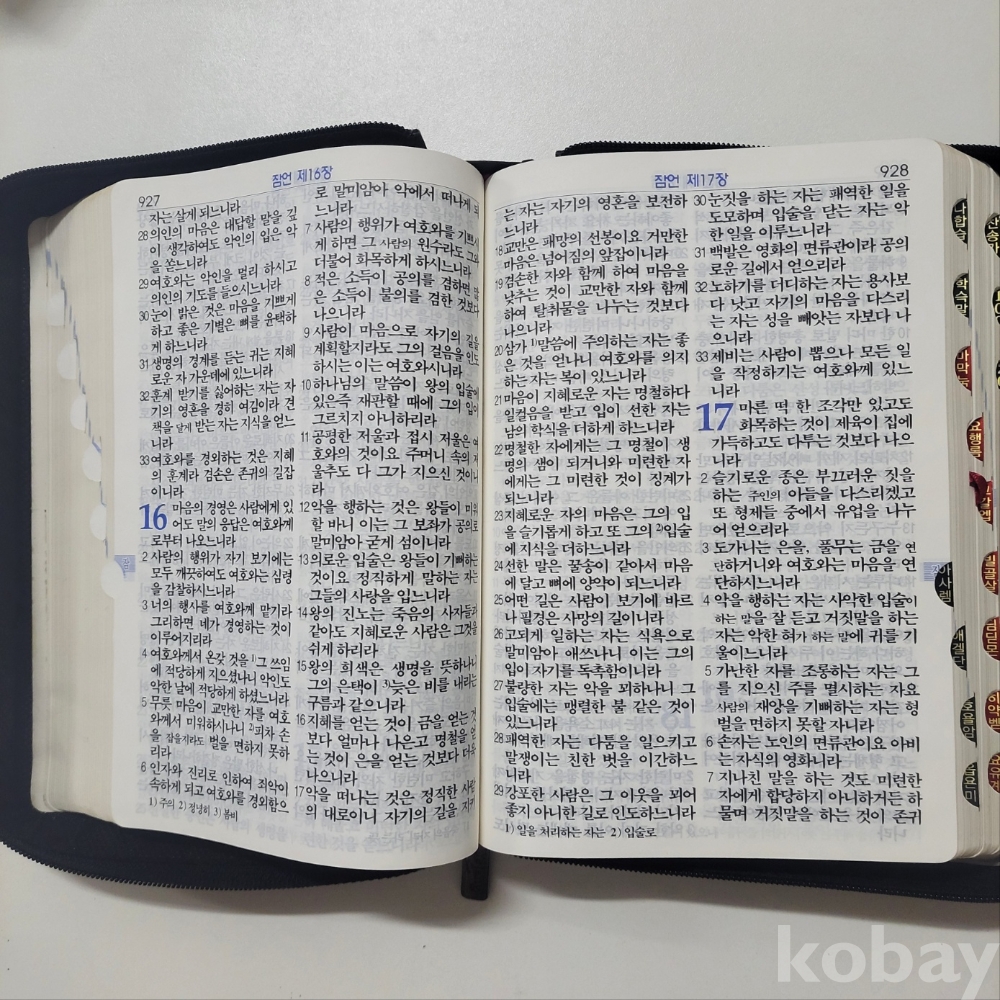 927
잠언 제16장
자는 살게 되느니라
28 의인의 마음은 대답할 말을 깊
이 생각하여도 악인의 입은 악
을 쏟느니라
29 여호와는 악인을 멀리 하시고
의인의 기도를 들으시느니라
30 눈이 밝은 것은 마음을 기쁘게
하고 좋은 기별은 뼈를 윤택하
게 하느니라
31 생명의 경계를 듣는 귀는 지혜
로운 자 가운데에 있느니라
32 훈계 받기를 싫어하는 자는 자
기의 영혼을 경히 여김이라 견
책을 달게 받는 자는 지식을 얻느
니라
33 여호와를 경외하는 것은 지혜
의 훈계라 겸손은 존귀의 길잡
이니라
16 마음의 경영은 사람에게 있
어도 말의 응답은 여호와께
로부터 나오느니라
2 사람의 행위가 자기 보기에는
모두 깨끗하여도 여호와는 심령
을 감찰하시느니라
3 너의 행사를 여호와께 맡기라
그리하면 네가 경영하는 것이
이루어지리라
4 여호와께서 온갖 것을 1)그 쓰임
에 적당하게 지으셨나니 악인도
악한 날에 적당하게 하셨느니라
5 무릇 마음이 교만한 자를 여호
와께서 미워하시나니 2)피차 손
을 잡을지라도 벌을 면하지 못하
리라
6 인자와 진리로 인하여 죄악이
속하게 되고 여호와를 경외함으
1) 주의 2) 정녕히 3) 봄비
로 말미암아 악에서 떠나게 되
느니라
7 사람의 행위가 여호와를 기쁘시
게 하면 그 사람의 원수라도 그와
더불어 화목하게 하시느니라
8 적은 소득이 공의를 겸하면 많
은 소득이 불의를 겸한 것보다
나으니라
9 사람이 마음으로 자기의 길을
계획할지라도 그의 걸음을 인도
하시는 이는 여호와시니라
10 하나님의 말씀이 왕의 입술에
있은즉 재판할 때에 그의 입이
그르치지 아니하리라
11 공평한 저울과 접시 저울은 여
호와의 것이요 주머니 속의 저
울추도 다 그가 지으신 것이니
라
12 악을 행하는 것은 왕들이 미워
할 바니 이는 그 보좌가 공의로
말미암아 굳게 섬이니라
13 의로운 입술은 왕들이 기뻐하는
것이요 정직하게 말하는 자는
그들의 사랑을 입느니라
14 왕의 진노는 죽음의 사자들과
같아도 지혜로운 사람은 그것을
쉬게 하리라
15 왕의 희색은 생명을 뜻하나니
그의 은택이 3)늦은 비를 내리는
구름과 같으니라
16 지혜를 얻는 것이 금을 얻는 것
보다 얼마나 나은고 명철을 얻
는 것이 은을 얻는 것보다 더욱
나으니라
17 악을 떠나는 것은 정직한 사람
의 대로이니 자기의 길을 지키
잠언 제17장
928
는 자는 자기의 영혼을 보전하
느니라
18 교만은 패망의 선봉이요 거만한
마음은 넘어짐의 앞잡이니라
19 겸손한 자와 함께 하여 마음을
낮추는 것이 교만한 자와 함께
하여 탈취물을 나누는 것보다
나으니라
20 삼가 1)말씀에 주의하는 자는 좋
은 것을 얻나니 여호와를 의지
하는 자는 복이 있느니라
21 마음이 지혜로운 자는 명철하다
일컬음을 받고 입이 선한 자는
남의 학식을 더하게 하느니라
22 명철한 자에게는 그 명철이 생
명의 샘이 되거니와 미련한 자
에게는 그 미련한 것이 징계가
되느니라
23 지혜로운 자의 마음은 그의 입
을 슬기롭게 하고 또 그의 2)입술
에 지식을 더하느니라
24 선한 말은 꿀송이 같아서 마음
에 달고 뼈에 양약이 되느니라
25 어떤 길은 사람이 보기에 바르
나 필경은 사망의 길이니라
26 고되게 일하는 자는 식욕으로
말미암아 애쓰나니 이는 그의
입이 자기를 독촉함이니라
27 불량한 자는 악을 꾀하나니 그
입술에는 맹렬한 불 같은 것이
있느니라
28 패역한 자는 다툼을 일으키고
말쟁이는 친한 벗을 이간하느
니라
29 강포한 사람은 그 이웃을 꾀어
좋지 아니한 길로 인도하느니라
1) 일을 처리하는 자는 2) 입술로
30 눈짓을 하는 자는 패역한 일을
도모하며 입술을 닫는 자는 악
한 일을 이루느니라
31 백발은 영화의 면류관이라 공의
로운 길에서 얻으리라
32 노하기를 더디하는 자는 용사보
다 낫고 자기의 마음을 다스리
는 자는 성을 빼앗는 자보다 나
으니라
33 제비는 사람이 뽑으나 모든 일
을 작정하기는 여호와께 있느
니라
17 마른 떡 한 조각만 있고도
화목하는 것이 제육이 집에
가득하고도 다투는 것보다 나으
니라
2 슬기로운 종은 부끄러운 짓을
하는 주인의 아들을 다스리겠고
또 형제들 중에서 유업을 나누
어 얻으리라
3 도가니는 은을, 풀무는 금을 연
단하거니와 여호와는 마음을 연
단하시느니라
4 악을 행하는 자는 사악한 입술이
하는 말을 잘 듣고 거짓말을 하는
자는 악한 혀가 하는 말에 귀를 기
울이느니라
5 가난한 자를 조롱하는 자는 그
를 지으신 주를 멸시하는 자요
사람의 재앙을 기뻐하는 자는 형
벌을 면하지 못할 자니라
6 손자는 노인의 면류관이요 아비
는 자식의 영화니라
7 지나친 말을 하는 것도 미련한
자에게 합당하지 아니하거든 하
물며 거짓말을 하는 것이 존귀
나합습
학슥말
마막눅
요행롬
갈엡
빌골살
딤딛몬
히약벧
요유계
아사렘
애겔단
호욜암
kobay